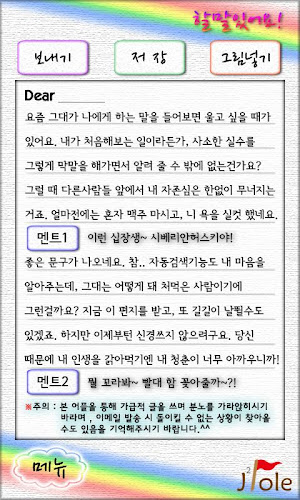 할말있어요!
보내기 저 장 그림넣기
Dear
요즘 그대가 나에게 하는 말을 들어보면 울고 싶을 때가
있어요. 내가 처음해보는 일이라든가, 사소한 실수를
그렇게 막말을 해가면서 알려 줄 수 밖에 없는건가요?
그럴 때 다른사람들 앞에서 내 자존심은 한없이 무너지는
거죠. 얼마전에는 혼자 맥주 마시고, 니 욕을 실컷 했네요.
멘트1 이런 십장생~ 시베리안허스키야!
좋은 문구가 나오네요. 참.. 자동검색기능도 내 마음을
알아주는데, 그대는 어떻게 돼 처먹은 사람이기에
그런걸까요? 지금 이 편지를 받고, 또 길길이 날뛸수도
있겠죠. 하지만 이제부턴 신경쓰지 않으려구요. 당신
때문에 내 인생을 갉아먹기엔 내 청춘이 너무 아까우니까!
멘트2 뭘 꼬라봐~ 빨대 함 꽂아줄까~?!
※주의 : 본 어플을 통해 가급적 글을 쓰며 분노를 가라앉히시기
바라며 , 이메일 발송 시 돌이킬 수 없는 상황이 찾아올
수도 있음을 기억해주시기 바랍니다.^^
메뉴
J2ole